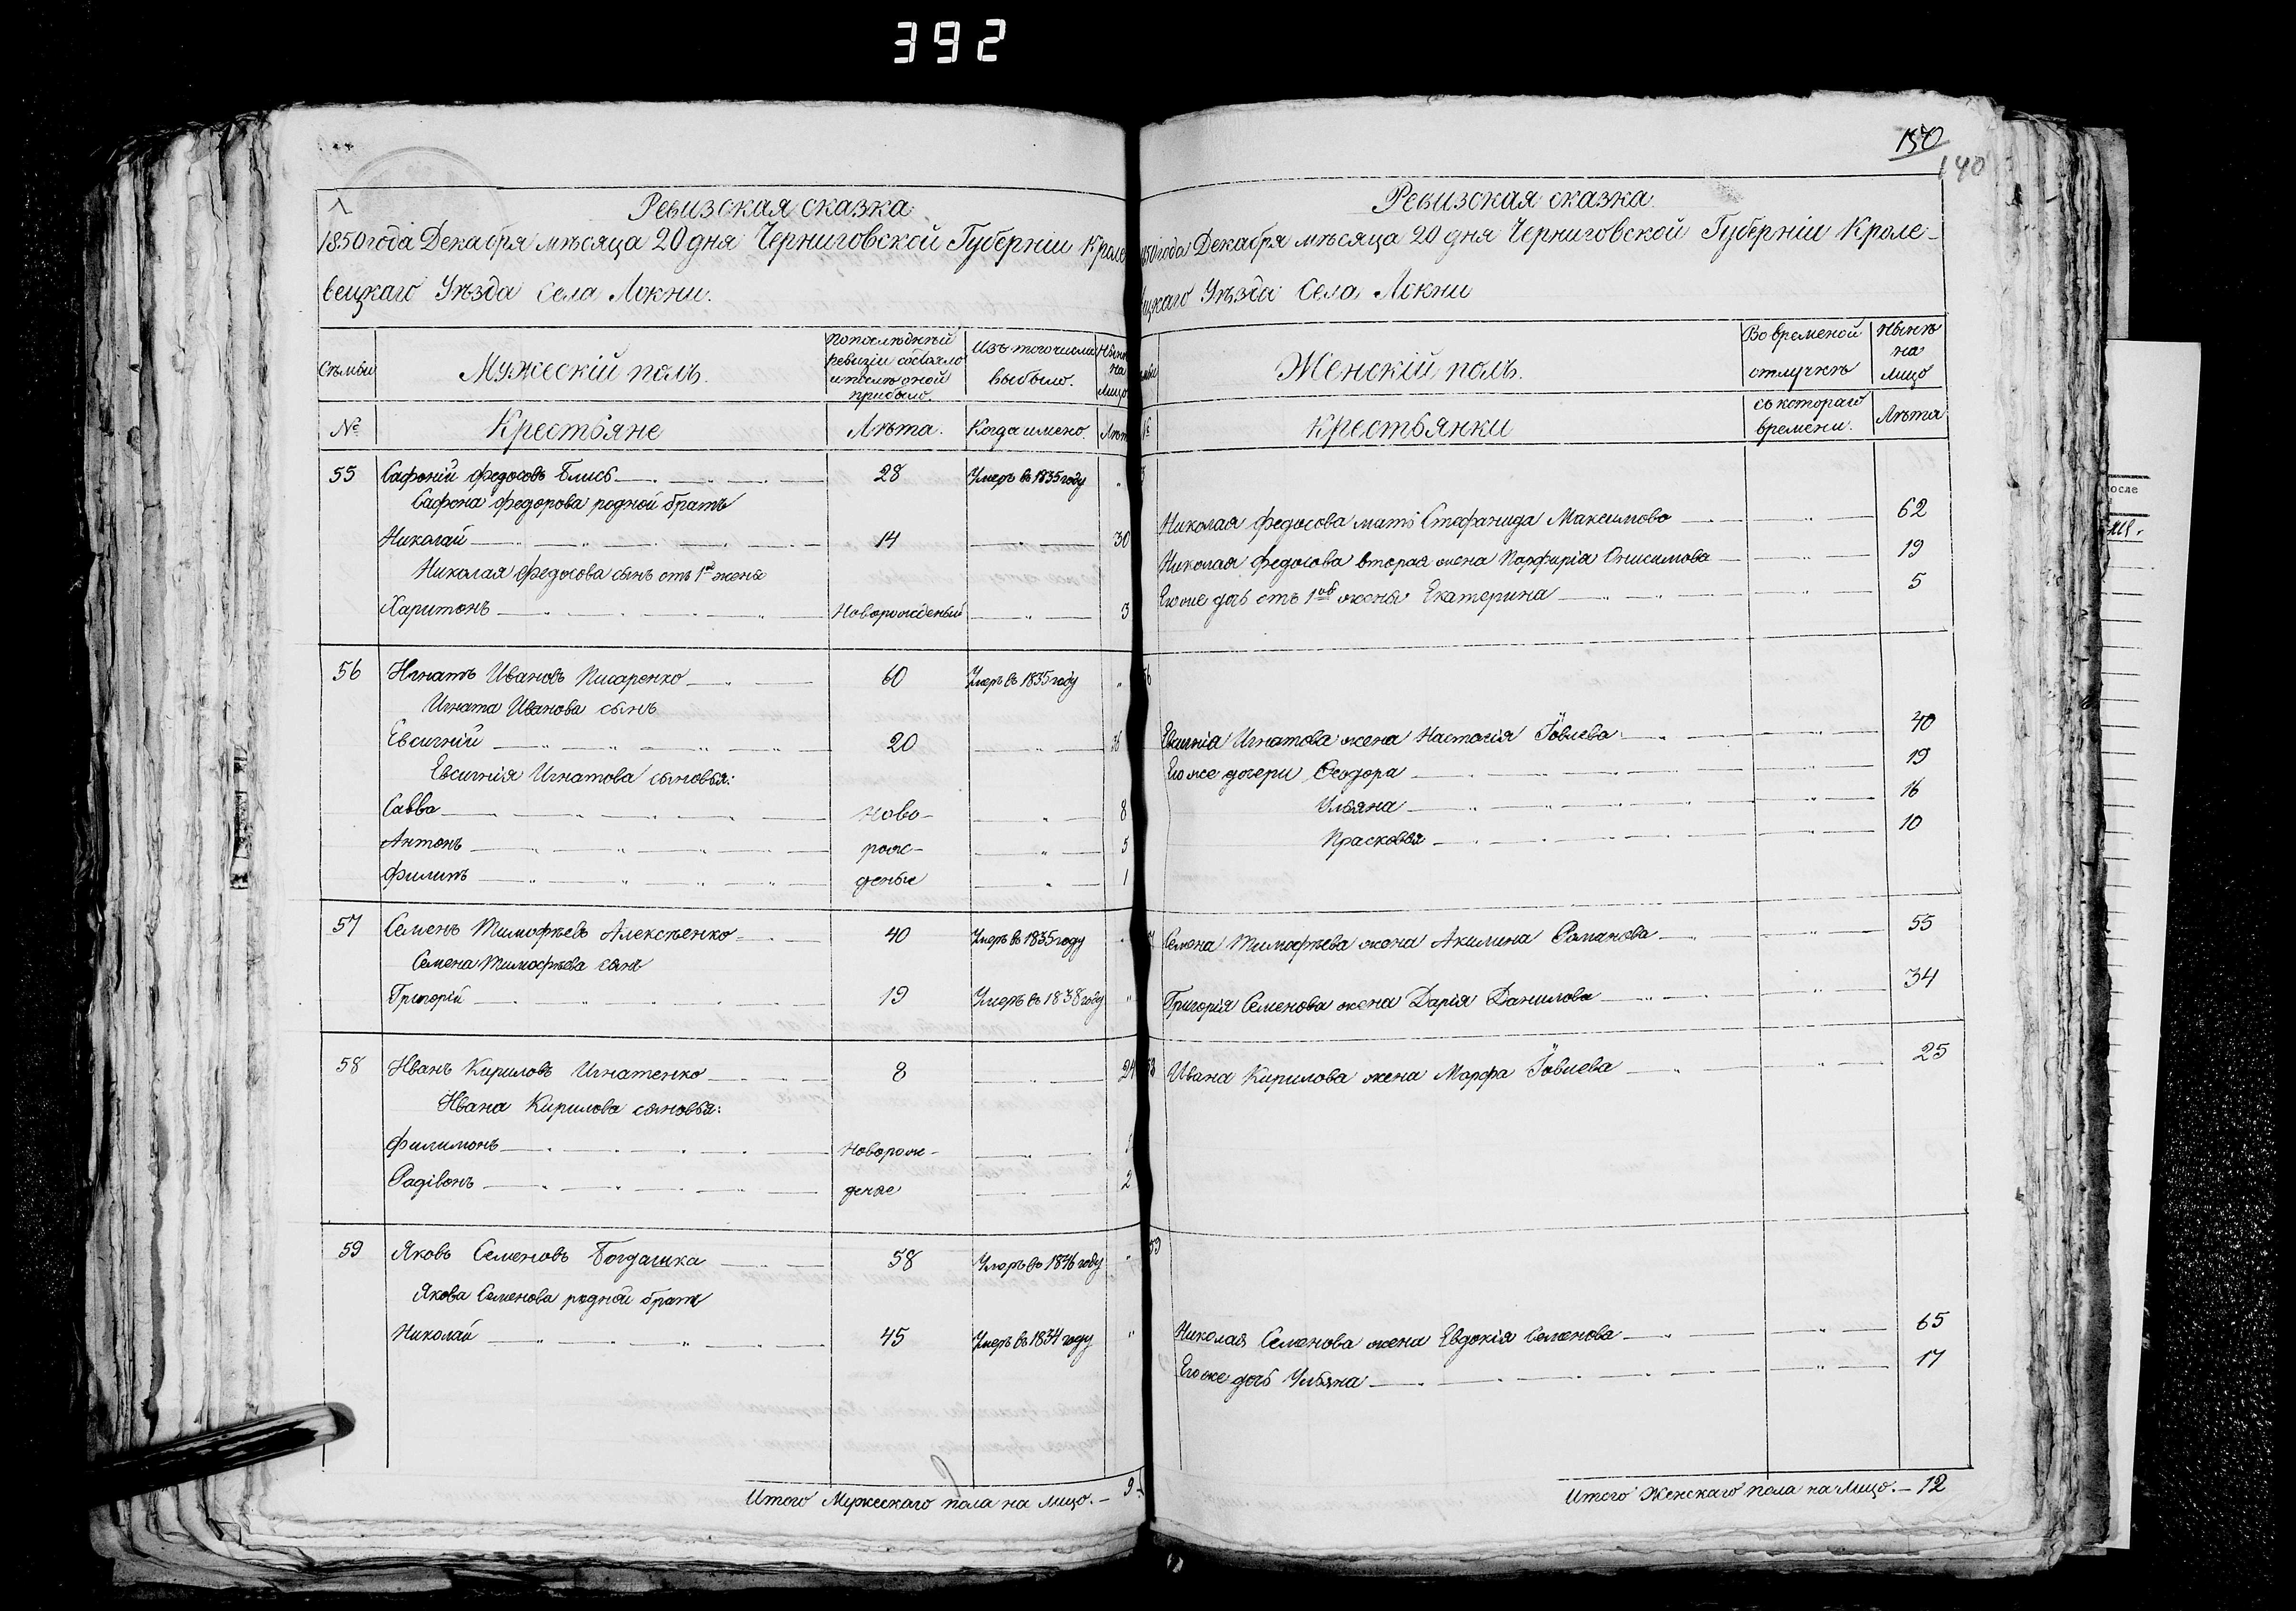 392
Ревизская сказка
1850 года Декабря мѣсяца 20 дня Черниговской Губерніи Кроле
вецкаго Уѣзда Села Локни.
Семьи
Мужескій полъ.
По послѣдней ревизіи состояло и послѣ оной прибыло.
Изъ того числа выбыло.
Нынѣ на лицо
№
Крестьяне
Лѣта.
Когда имено.
Лѣта
55 Сафоній Федосовъ Блисъ 28 Умеръ въ 1835 году
Сафона Федорова родной братъ
Николай 14 30
Николая Федосова сынъ отъ 1й жены
Харитонъ Новорожденый 3
56 Игнатъ Ивановъ Писаренко 60 Умеръ въ 1835 году
Игната Иванова сынъ
Евсигній 20 36
Евсигнія Игнатова сыновья:
Савва Ново- 8
Антонъ рож- 5
Филипъ деные 1
57 Семенъ Тимофѣевъ Алексѣенко 40 Умеръ въ 1835 году
Семена Тимофѣева сынъ
Григорій 19 Умеръ въ 1838 году
58 Иванъ Кириловъ Игнатенко 8 24
Ивана Кирилова сыновья:
Филимонъ Новорож-
Радівонъ деные 2
59 Яковъ Семеновъ Богдашка 58 Умеръ въ 1846 году
Якова Семенова родной братъ
Николай 45 Умеръ въ 1834 году
Итого Мужескаго пола на лицо. — 9
150
140
Ревизская сказка
1850 года Декабря мѣсяца 20 дня Черниговской Губерніи Кроле-
вецкаго Уѣзда Села Локни
Женскій полъ.
Во временой отлучкѣ
Нынѣ на лицо
№
Крестьянки
съ котораго времени.
Лѣта
Николая Федосова мать Стефанида Максимова 62
Николая Федосова вторая жена Парфирія Онисимова 19
Его же дочь отъ 1ой жены Екатерина 5
56
Евсигнія Игнатова жена Настасія Іовлева 40
Его же дочери Феодора 19
Ульяна 16
Прасковья 10
Семена Тимофѣева жена Акилина Романова 55
Григорія Семенова жена Дарія Данилова 34
58 Ивана Кирилова жена Марфа Іовлева 25
59
Николая Семенова жена Евдокія Семенова 65
Его же дочь Ульяна 17
Итого Женскаго пола на лицо. — 12
после